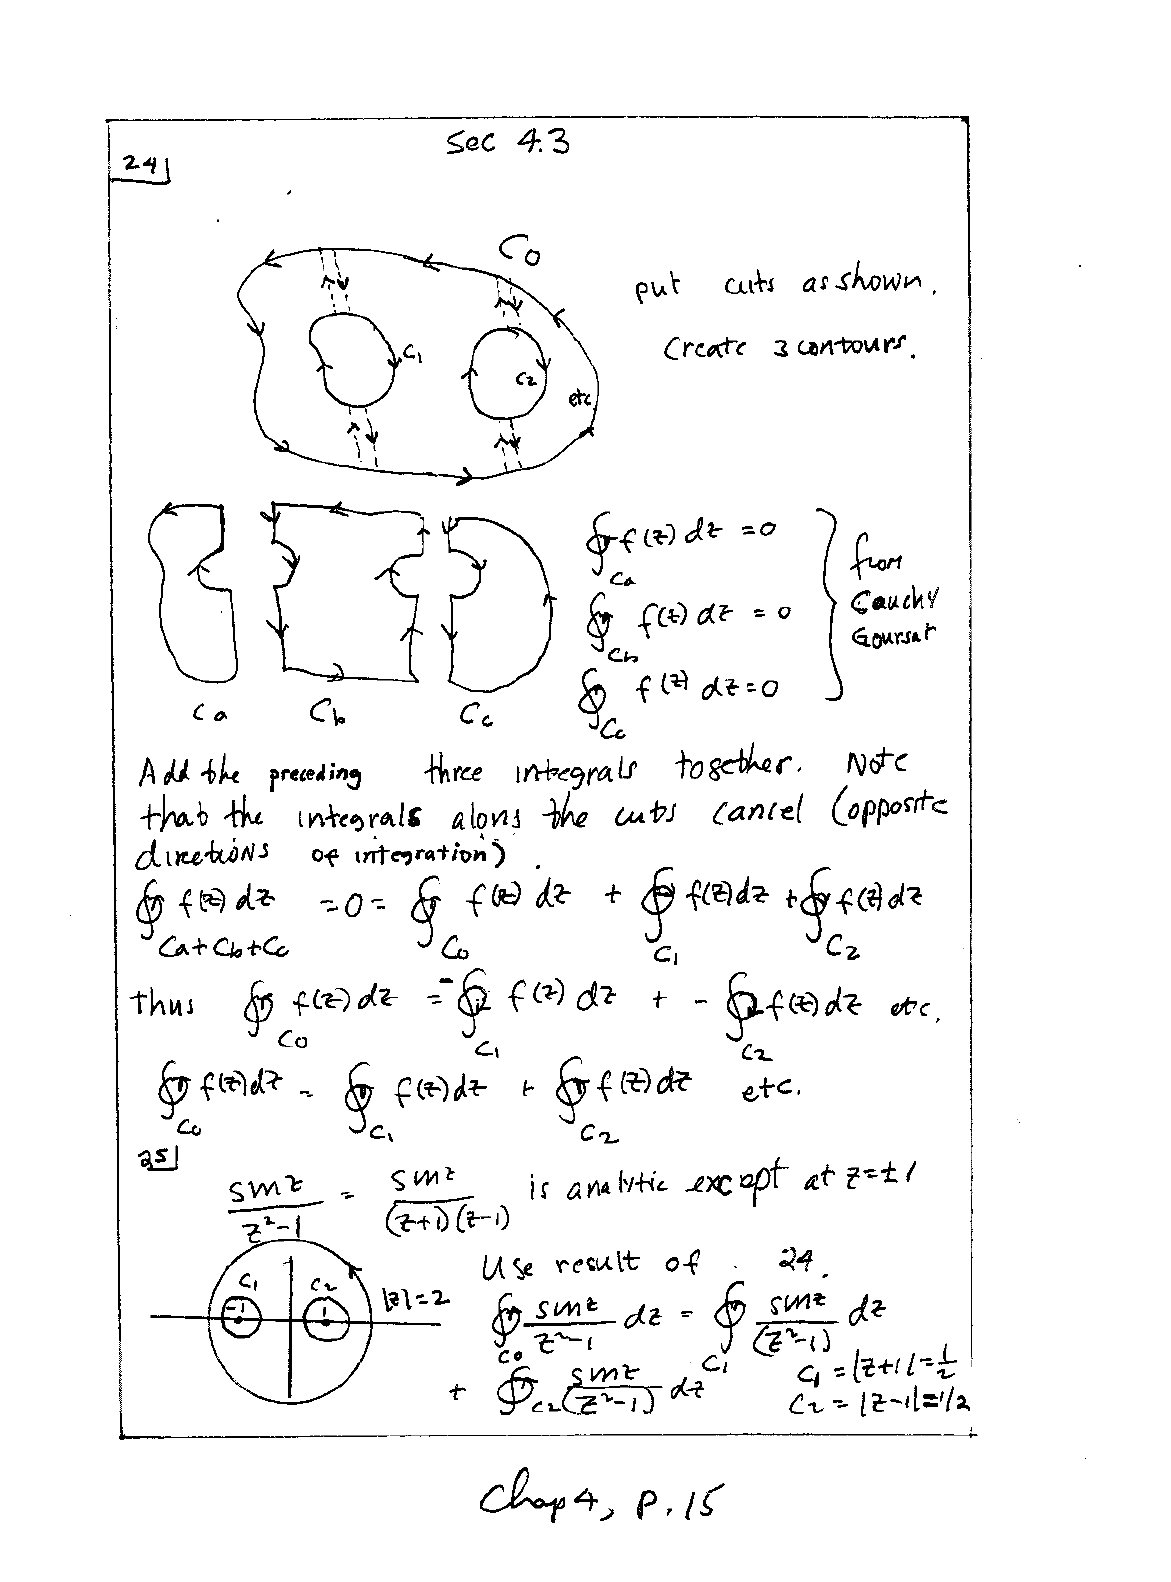 Sec 4.3
24
C0
put cuts as shown.
Create 3 contours.
C1
C2
etc
∮Ca f(z) dz = 0
∮Cb f(z) dz = 0
∮Cc f(z) dz = 0
from
Cauchy
Goursat
Ca Cb Cc
Add the preceding three integrals together. Note
that the integrals along the cuts cancel (opposite
directions of integration).
∮Ca+Cb+Cc f(z) dz = 0 = ∮C0 f(z) dz + ∮C1 f(z) dz + ∮C2 f(z) dz
thus ∮C0 f(z) dz = -∮C1 f(z) dz + - ∮C2 f(z) dz etc.
∮C0 f(z) dz = ∮C1 f(z) dz + ∮C2 f(z) dz etc.
25
sin z / z²-1 = sin z / (z+1)(z-1) is analytic except at z=±1
Use result of 24.
C1 C2
-1 1
|z|=2
∮C0 sin z / z²-1 dz = ∮C1 sin z / (z²-1) dz
+ ∮C2 sin z / (z²-1) dz
C1 = |z+1| = 1/2
C2 = |z-1| = 1/2
Chap 4, p. 15